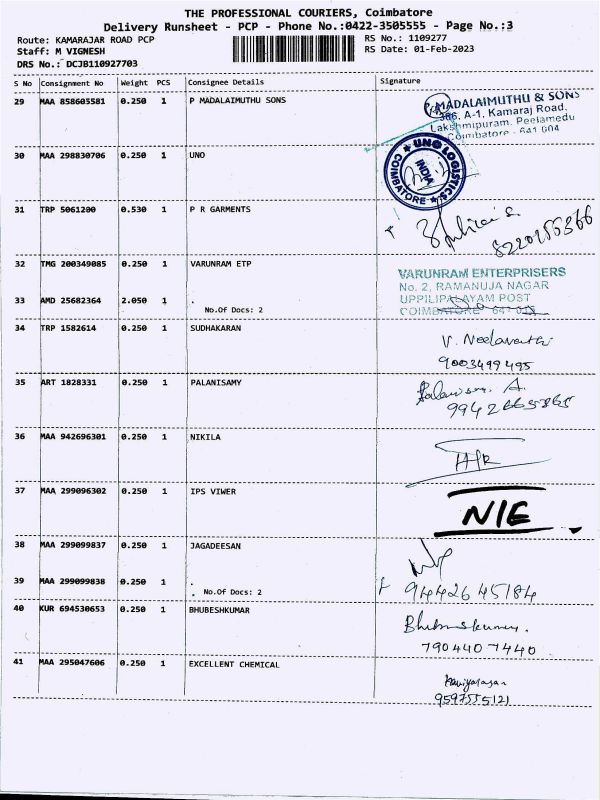 THE PROFESSIONAL COURIERS, Coimbatore
Delivery Runsheet - PCP - Phone No.:0422-3505555 - Page No.:3
Route: KAMARAJAR ROAD PCP
RS No.: 1109277
Staff: M VIGNESH
RS Date: 01-Feb-2023
DRS No.: DCJB110927703
S No Consignment No Weight PCS Consignee Details Signature
29 MAA 858605581 0.250 1 P MADALAIMUTHU SONS
P. MADALAIMUTHU & SONS
386, A-1, Kamaraj Road,
Lakshmipuram, Peelamedu
Coimbatore - 641 004
30 MAA 298830706 0.250 1 UNO
UNO LOGISTICS
INDIA
COIMBATORE
31 TRP 5061200 0.530 1 P R GARMENTS
8220155366
32 TMG 200349085 0.250 1 VARUNRAM ETP
VARUNRAM ENTERPRISERS
No. 2, RAMANUJA NAGAR
UPPILIPALAYAM POST
COIMBATORE
33 AMD 25682364 2.050 1 .
No.Of Docs: 2
34 TRP 1582614 0.250 1 SUDHAKARAN
V. Neelavathi
9003499495
35 ART 1828331 0.250 1 PALANISAMY
Palanisamy. A.
36 MAA 942696301 0.250 1 NIKILA
37 MAA 299096302 0.250 1 IPS VIWER
N/E
38 MAA 299099837 0.250 1 JAGADEESAN
39 MAA 299099838 0.250 1 .
. No.Of Docs: 2
9442645184
40 KUR 694530653 0.250 1 BHUBESHKUMAR
Bhubeshkumar.
7904407440
41 MAA 295047606 0.250 1 EXCELLENT CHEMICAL
9597555121